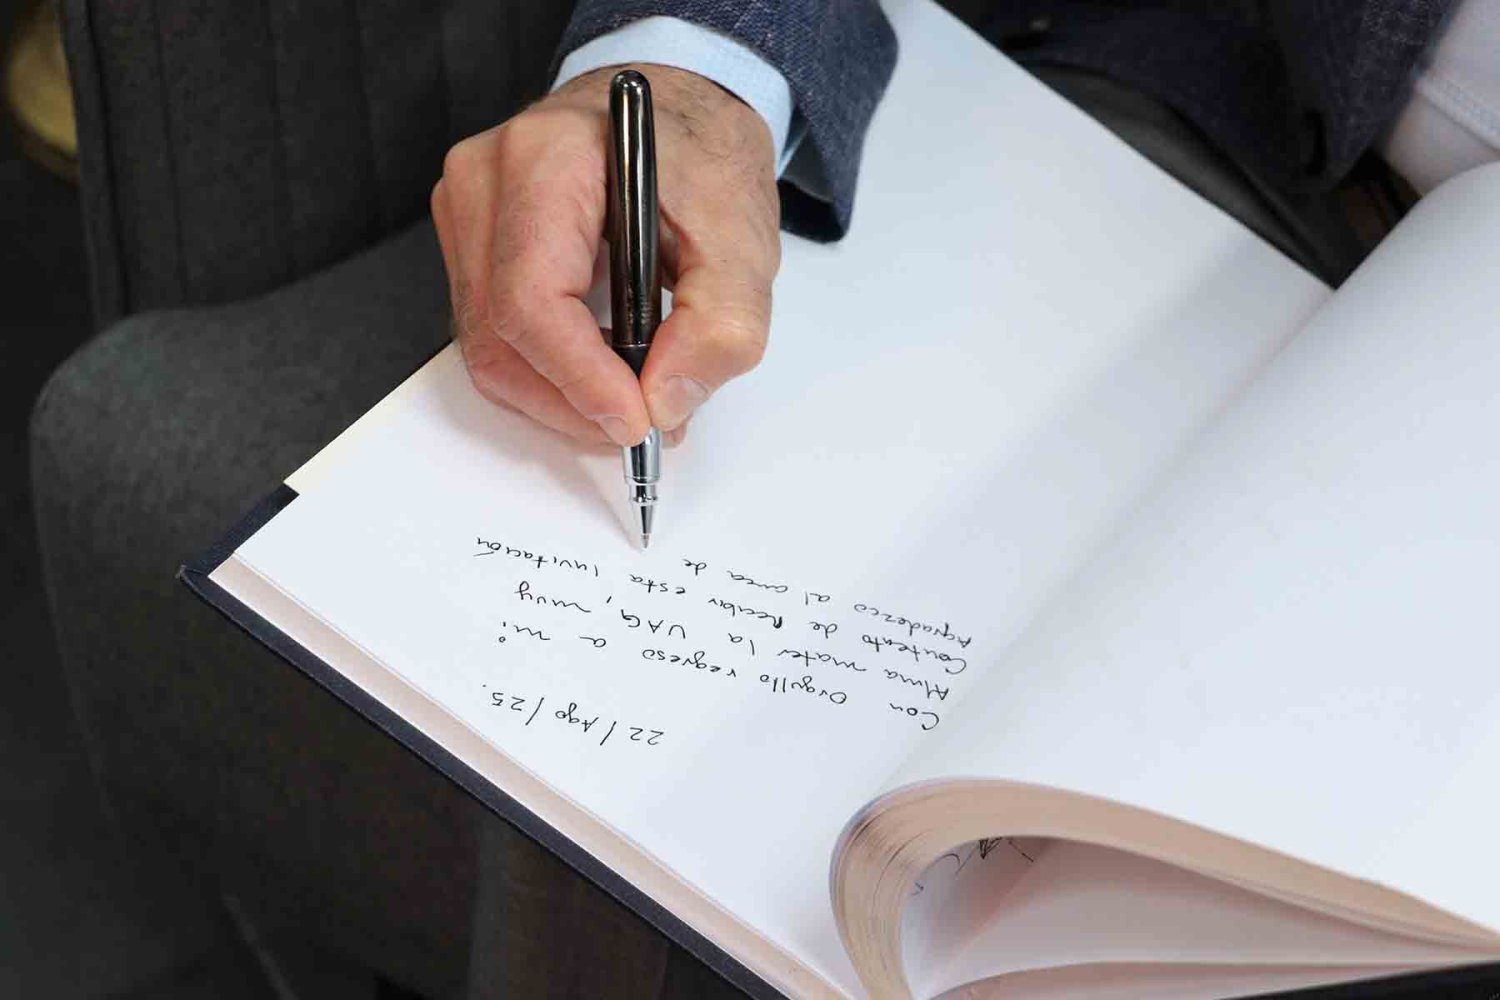 22/Ago/25.
Con Orgullo regreso a mi
Alma mater la UAG, muy
Contento de Recibir esta invitación
Agradezco al area de